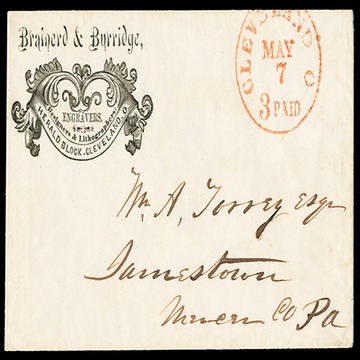 Brainerd & Burridge,
ENGRAVERS,
Designers & Lithographers
HERALD BLOCK, CLEVELAND, O.
CLEVELAND O
MAY
7
3 PAID
Wm. A. Torrey Esqr
Jamestown
Mercer Co Pa